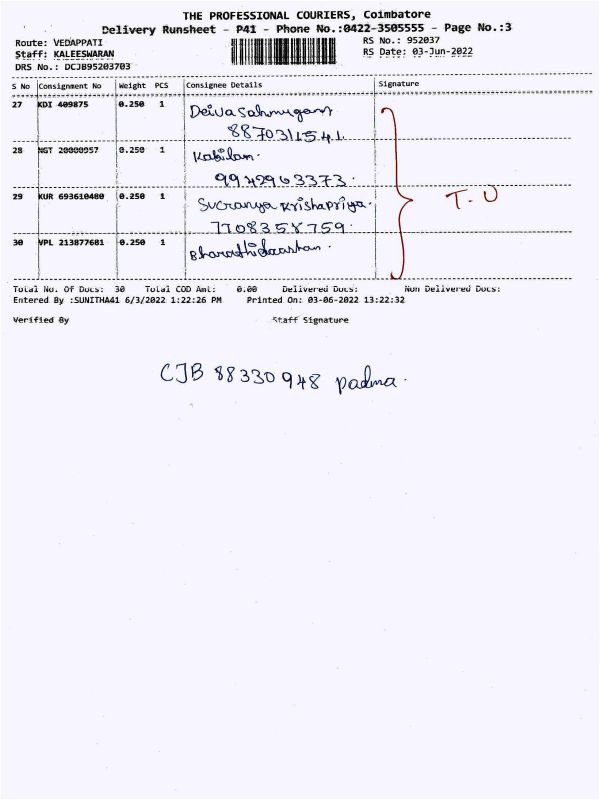 THE PROFESSIONAL COURIERS, Coimbatore
Delivery Runsheet - P41 - Phone No.:0422-3505555 - Page No.:3
Route: VEDAPPATI RS No.: 952037
Staff: KALEESWARAN RS Date: 03-Jun-2022
DRS No.: DCJB95203703
S No Consignment No Weight PCS Consignee Details Signature
27 KDI 409875 0.250 1 Deivasahmugam
8870311541.
28 NGT 20000957 0.250 1 Kabilan.
9942963373.
29 KUR 693610480 0.250 1 Sucranya Krishapriya.
7708358759.
T.U
30 VPL 213877681 0.250 1 Bharathidaashan.
Total No. Of Docs: 30 Total COD Amt: 0.00 Delivered Docs: Non Delivered Docs:
Entered By :SUNITHA41 6/3/2022 1:22:26 PM Printed On: 03-06-2022 13:22:32
Verified By Staff Signature
CJB 88330948 padma.